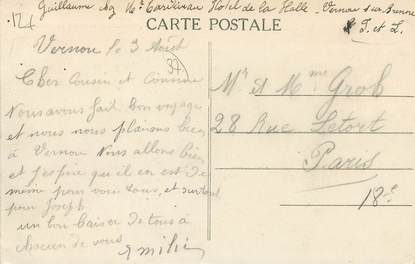 Guillaume Hotel de la Halle - Vernou sur Brenne
I. et L.
CARTE POSTALE
Vernou le 3 Août
37
Cher Cousin et Cousine
Nous avons fait bon voyage
et nous nous plaisons bien
à Vernou Nous allons bien
et j'espère qu'il en est de
même pour vous tous, et surtout
pour Joseph
un bon baiser de tous à
chacun de vous
Emilie
Mr et Mme Groh
28 Rue Letort
Paris
18e